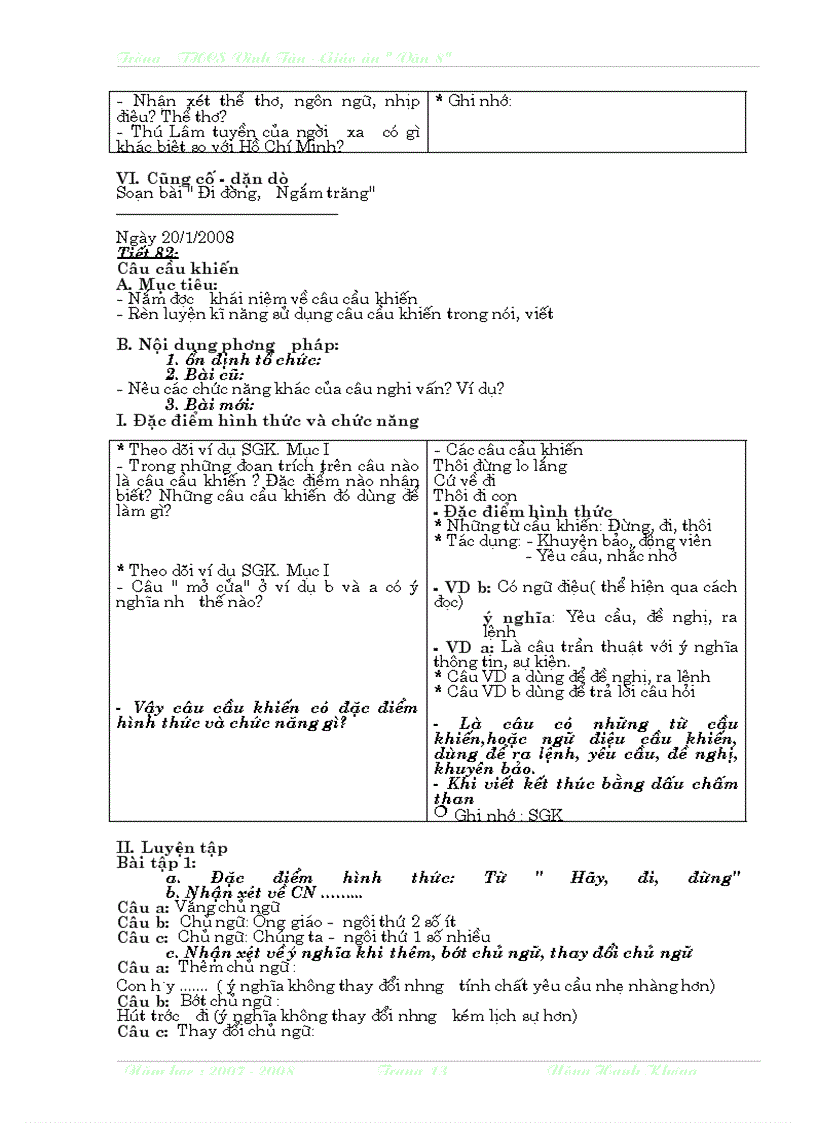 Trờng THCS Vĩnh Tân - Giáo án " Văn 8"
- Nhận xét thể thơ, ngôn ngữ, nhịp
điệu? Thể thơ?
- Thú Lâm tuyền của ngời xa có gì
khác biệt so với Hồ Chí Minh?
* Ghi nhớ:
VI. Cũng cố - dặn dò
Soạn bài " Đi đờng, Ngắm trăng"
Ngày 20/1/2008
Tiết 82:
Câu cầu khiến
A. Mục tiêu:
- Nắm đợc khái niệm về câu cầu khiến
- Rèn luyện kĩ năng sử dụng câu cầu khiến trong nói, viết
B. Nội dung phơng pháp:
1. ổn định tổ chức:
2. Bài cũ:
- Nêu các chức năng khác của câu nghi vấn? Ví dụ?
3. Bài mới:
I. Đặc điểm hình thức và chức năng
* Theo dõi ví dụ SGK. Mục I
- Trong những đoạn trích trên câu nào
là câu cầu khiến ? Đặc điểm nào nhận
biết? Những câu cầu khiến đó dùng để
làm gì?
* Theo dõi ví dụ SGK. Mục I
- Câu " mở cửa" ở ví dụ b và a có ý
nghĩa nh thế nào?
- Vậy câu cầu khiến có đặc điểm
hình thức và chức năng gì?
- Các câu cầu khiến
Thôi đừng lo lắng
Cứ về đi
Thôi đi con
- Đặc điểm hình thức
* Những từ cầu khiến: Đừng, đi, thôi
* Tác dụng: - Khuyên bảo, động viên
- Yêu cầu, nhắc nhở
- VD b: Có ngữ điệu( thể hiện qua cách
đọc)
ý nghĩa: Yêu cầu, đề nghị, ra
lệnh
- VD a: Là câu trần thuật với ý nghĩa
thông tin, sự kiện.
* Câu VD a dùng để đề nghị, ra lệnh
* Câu VD b dùng để trả lời câu hỏi
- Là câu có những từ cầu
khiến,hoặc ngữ điệu cầu khiến,
dùng để ra lệnh, yêu cầu, đề nghị,
khuyên bảo.
- Khi viết kết thúc bằng dấu chấm
than
Ghi nhớ : SGK
II. Luyện tập
Bài tập 1:
a. Đặc điểm hình thức: Từ " Hãy, đi, đừng"
b. Nhận xét về CN .........
Câu a: Vắng chủ ngữ
Câu b: Chủ ngữ: Ông giáo - ngôi thứ 2 số ít
Câu c: Chủ ngữ: Chúng ta - ngôi thứ 1 số nhiều
c. Nhận xét về ý nghĩa khi thêm, bớt chủ ngữ, thay đổi chủ ngữ
Câu a: Thêm chủ ngữ :
Con h·y ....... ( ý nghĩa không thay đổi nhng tính chất yêu cầu nhẹ nhàng hơn)
Câu b: Bớt chủ ngữ :
Hút trớc đi (ý nghĩa không thay đổi nhng kém lịch sự hơn)
Câu c: Thay đổi chủ ngữ:
Năm học : 2007 - 2008 Trang 13